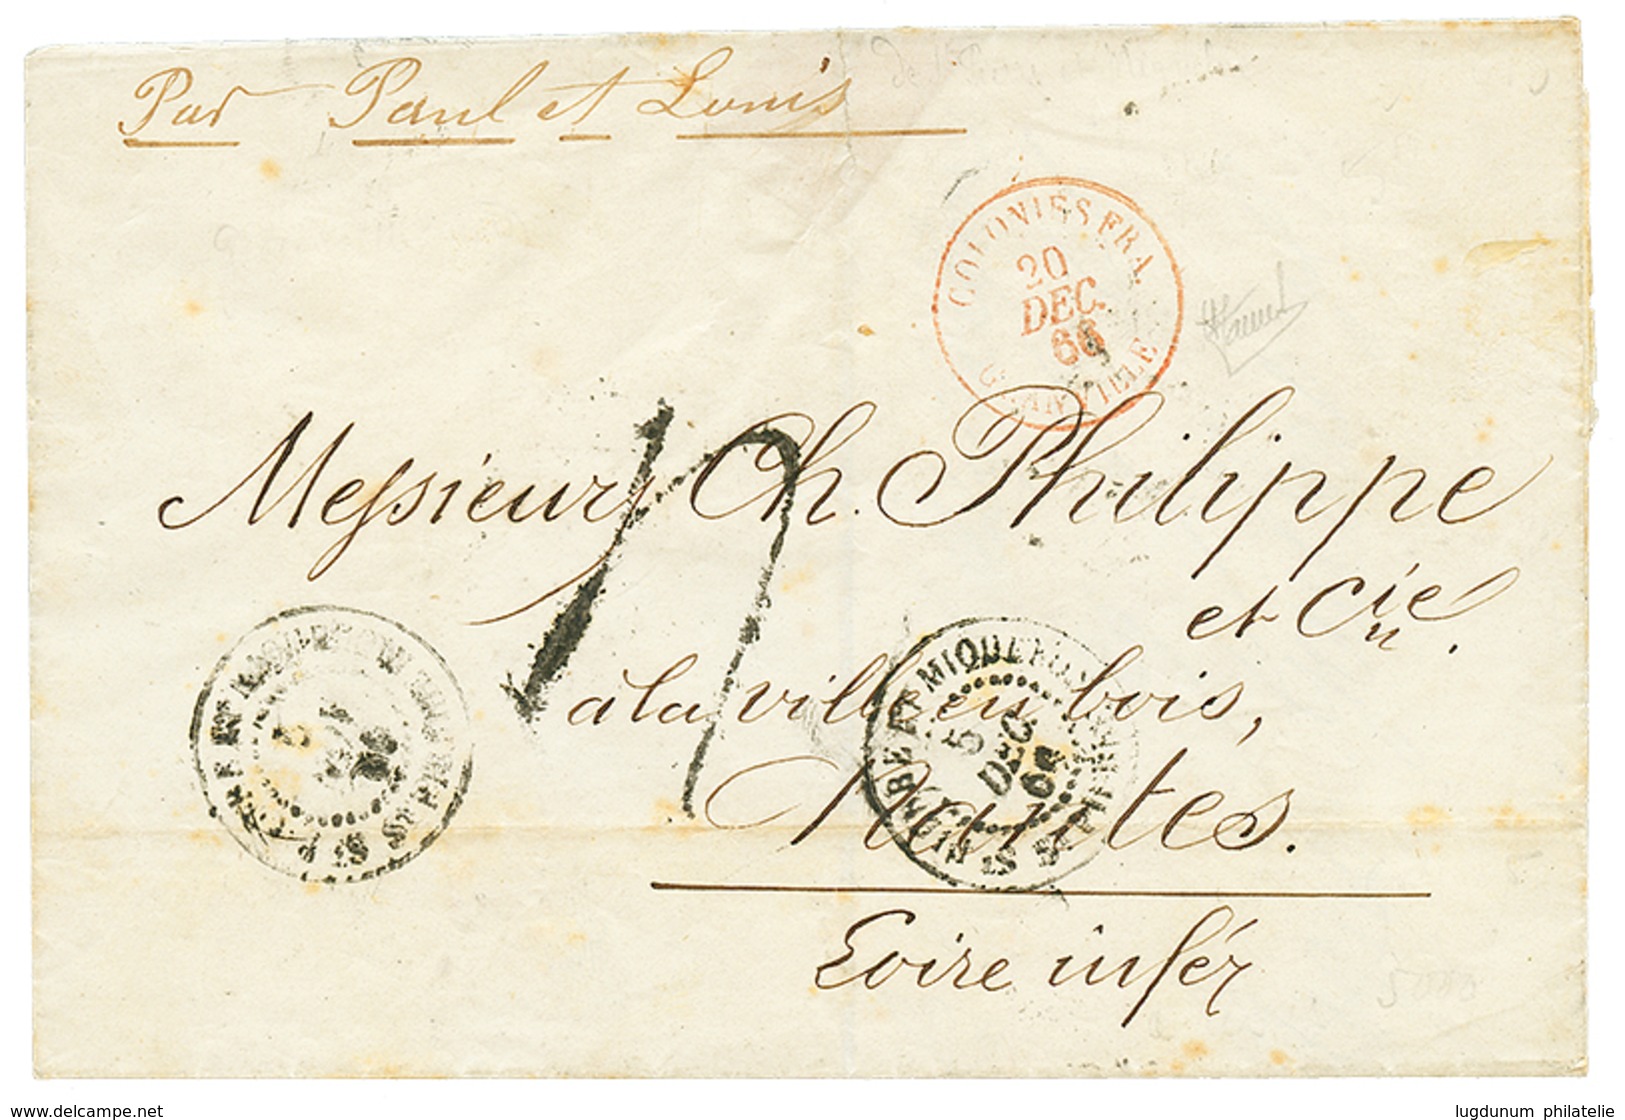 Par Paul et Louis
COLONIES FRA.
20
DEC.
66
Messieurs Ch. Philippe
et Cie.
à la ville en bois,
Nantes.
Loire infér
ET MIQUELON
5
DEC
66
ST PIERRE
17
5000
delcampe.net
lugdunum philatelie